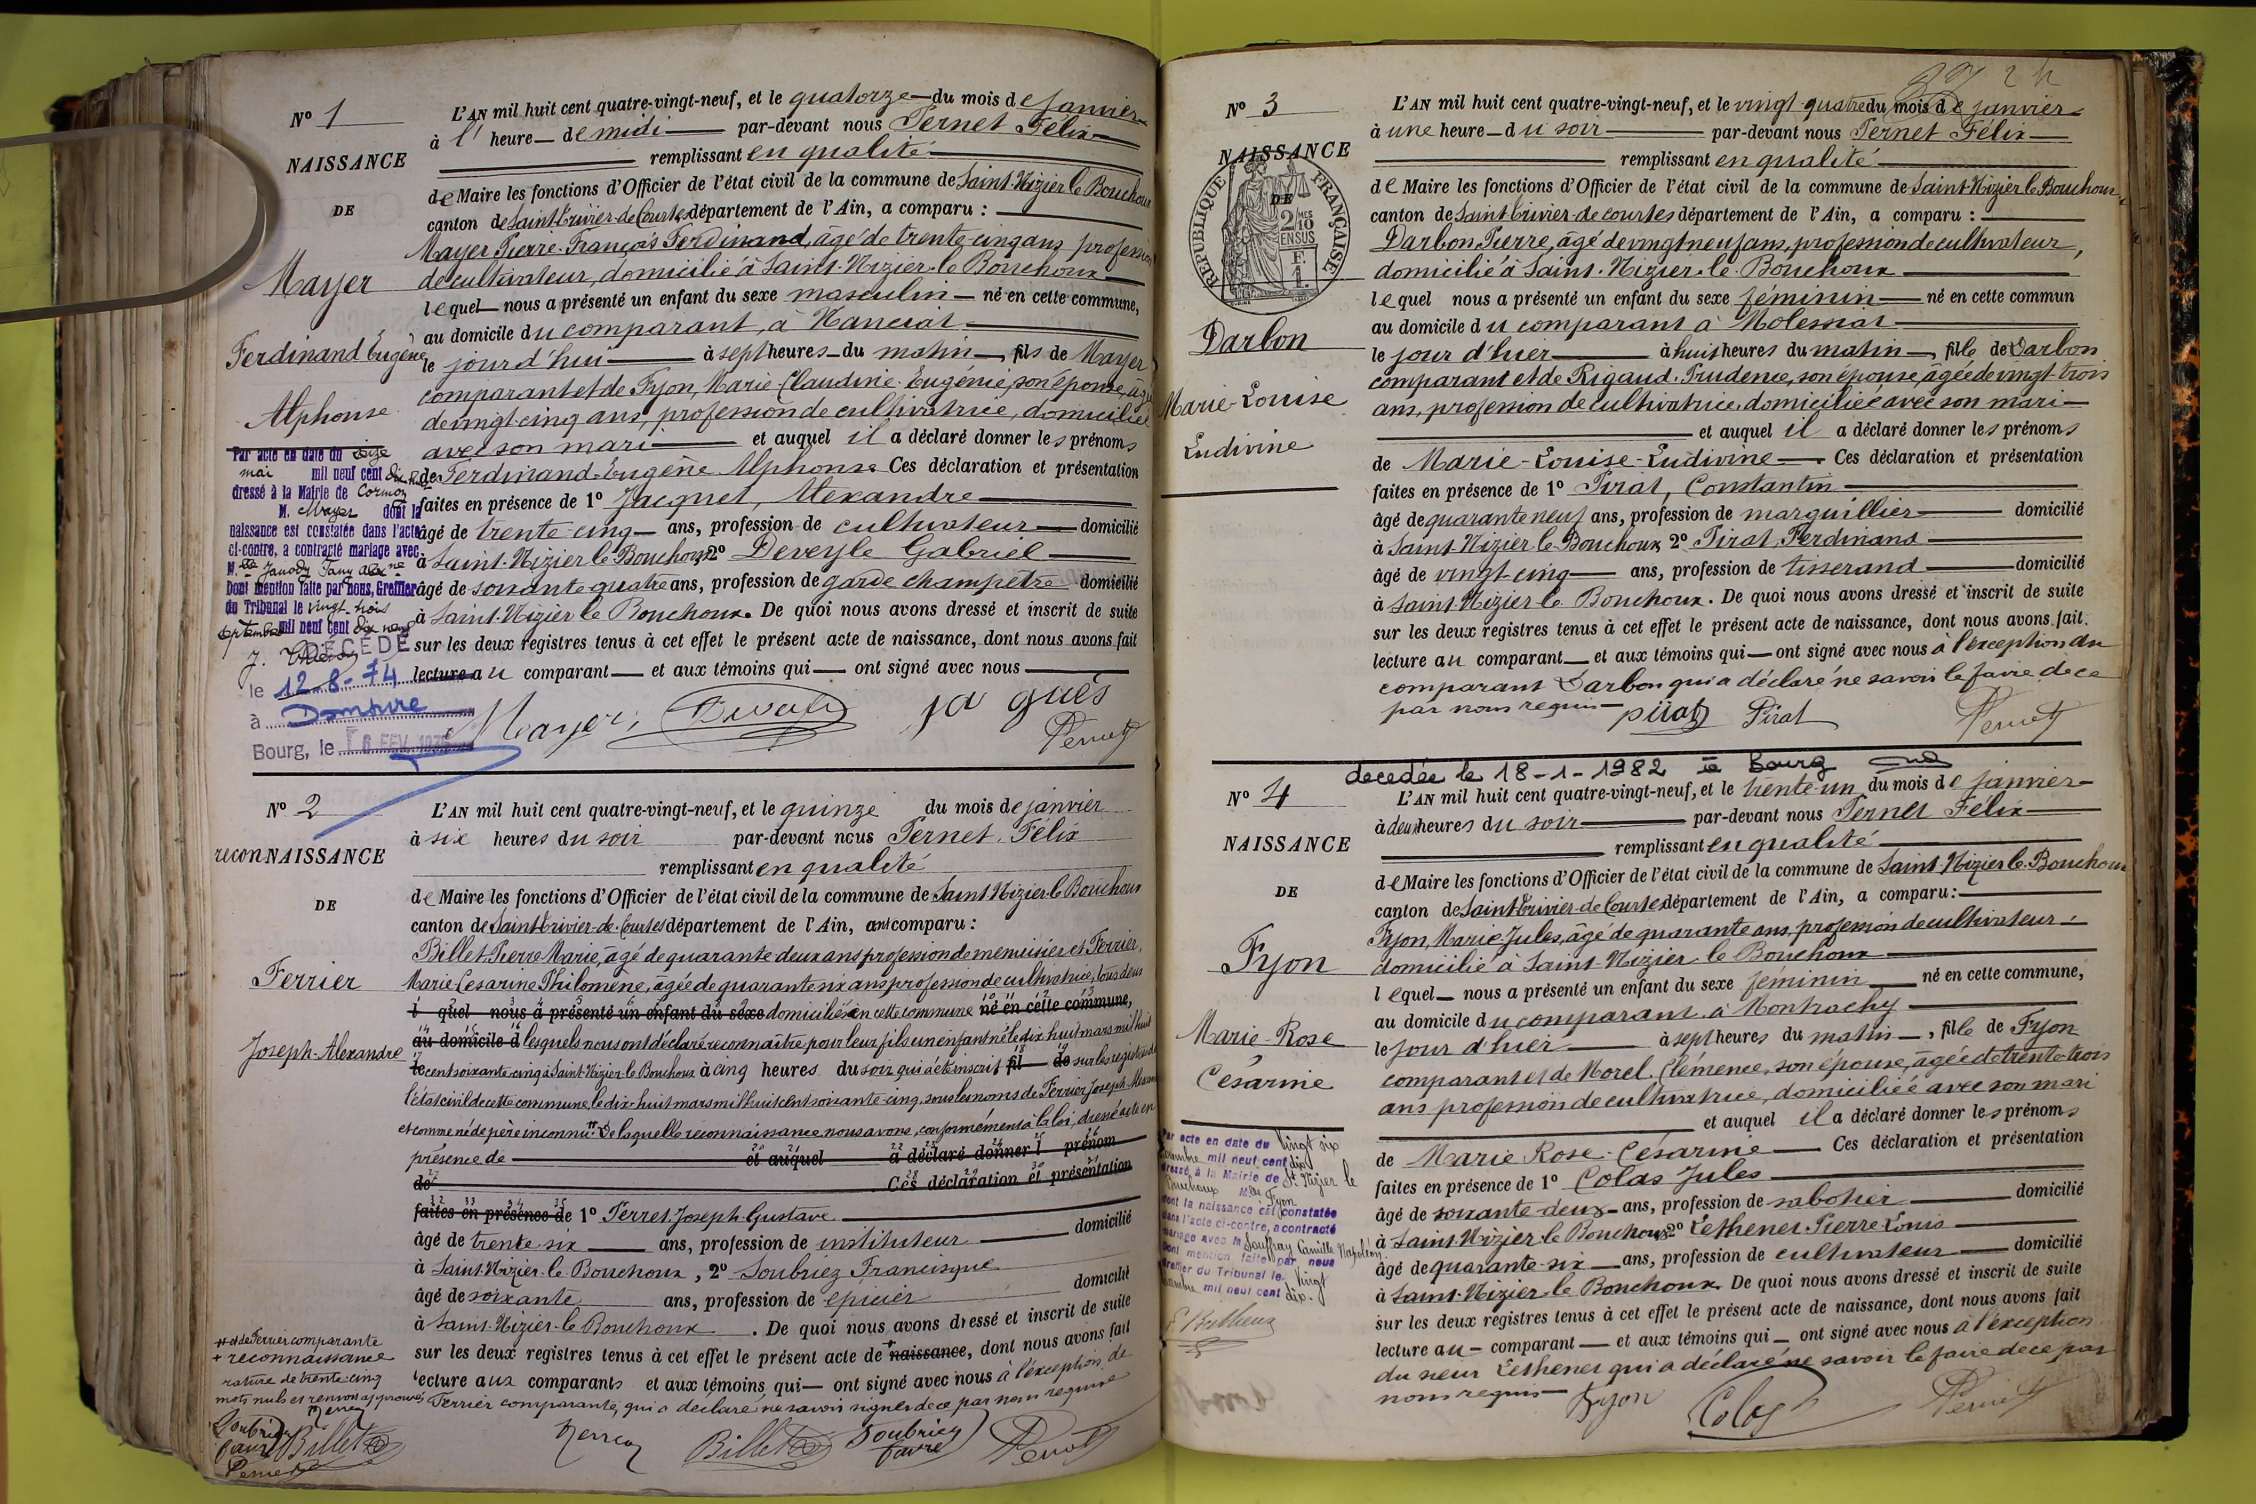 N° 1
NAISSANCE
DE
Mayer
Ferdinand Eugène
Alphonse
Par acte en date du seize
mai mil neuf cent dix
dressé à la Mairie de Cormoz
M. Mayer dont la
naissance est constatée dans l'acte
ci-contre, a contracté mariage avec
M.lle Janody Fany
Dont mention faite par nous, Greffier
du Tribunal le vingt trois
septembre mil neuf cent dix neuf
DÉCÉDÉ
le 12-8-74
à Domsure
Bourg, le 6 FEV.
L'AN mil huit cent quatre-vingt-neuf, et le quatorze du mois de janvier
à l' heure de midi par-devant nous Pernet Félix
remplissant en qualité
de Maire les fonctions d'Officier de l'état civil de la commune de Saint-Nizier-le-Bouchoux
canton de Saint-Trivier-de-Courtes département de l'Ain, a comparu :
Mayer Pierre-François Ferdinand, âgé de trente-cinq ans profession
de cultivateur, domicilié à Saint-Nizier-le-Bouchoux
lequel nous a présenté un enfant du sexe masculin né en cette commune,
au domicile du comparant, à Nancrat
le jourd'hui à sept heures du matin, fils de Mayer
comparant et de Fyon, Marie-Claudine-Eugénie, son épouse, âgée
de vingt-cinq ans, profession de cultivatrice, domiciliée
avec son mari et auquel il a déclaré donner les prénoms
de Ferdinand-Eugène Alphonse Ces déclaration et présentation
faites en présence de 1° Jacquet, Alexandre
âgé de trente-cinq ans, profession de cultivateur domicilié
à Saint-Nizier-le-Bouchoux 2° Deveyle Gabriel
âgé de soixante-quatre ans, profession de garde champêtre domicilié
à Saint-Nizier-le-Bouchoux. De quoi nous avons dressé et inscrit de suite
sur les deux registres tenus à cet effet le présent acte de naissance, dont nous avons fait
lecture au comparant et aux témoins qui ont signé avec nous
Mayer jaques
Pernet
N° 2
reconNAISSANCE
DE
Ferrier
Joseph-Alexandre
L'AN mil huit cent quatre-vingt-neuf, et le quinze du mois de janvier
à six heures du soir par-devant nous Pernet, Félix
remplissant en qualité
de Maire les fonctions d'Officier de l'état civil de la commune de Saint-Nizier-le-Bouchoux
canton de Saint-Trivier-de-Courtes département de l'Ain, ont comparu :
Billet Pierre Marie, âgé de quarante deux ans profession de menuisier et Ferrier,
Marie Césarine Philomène, âgée de quarante six ans profession de cultivatrice, tous deux
l quel nous a présenté un enfant du sexe domiciliés en cette commune né en cette commune,
au domicile d lesquels nous ont déclaré reconnaître pour leur fils un enfant né le dix huit mars mil huit
le cent soixante-cinq à Saint-Nizier-le-Bouchoux à cinq heures du soir qui a été inscrit fil de sur les registres de
l'état civil de cette commune, le dix-huit mars mil huit cent soixante-cinq, sous les noms de Ferrier Joseph-Alexandre
et comme né de père inconnu # De laquelle reconnaissance nous avons, conformément à la loi, dressé acte en
présence de et auquel a déclaré donner l prénom
de Ces déclaration et présentation
faites en présence de 1° Perret Joseph Gustave
âgé de trente-six ans, profession de instituteur domicilié
à Saint-Nizier-le-Bouchoux, 2° Soubriez Francisque
âgé de soixante ans, profession de épicier domicilié
à Saint-Nizier-le-Bouchoux. De quoi nous avons dressé et inscrit de suite
sur les deux registres tenus à cet effet le présent acte de + naissance, dont nous avons fait
lecture aux comparants et aux témoins qui ont signé avec nous à l'exception de
Ferrier comparante, qui a déclaré ne savoir signer de ce par nous requise
# et de Ferrier comparante
+ reconnaissance
rature de trente cinq
mots nuls et renvoi approuvés
Billet
Pernet
Perret Billet Soubriez
favre Pernet
N° 3
NAISSANCE
DE
RÉPUBLIQUE FRANÇAISE
2/10 MES
EN SUS
F.
1.
Darbon
Marie-Louise
Ludivine
L'AN mil huit cent quatre-vingt-neuf, et le vingt-quatre du mois de janvier
à une heure du soir par-devant nous Pernet Félix
remplissant en qualité
de Maire les fonctions d'Officier de l'état civil de la commune de Saint-Nizier-le-Bouchoux
canton de Saint-Trivier-de-Courtes département de l'Ain, a comparu :
Darbon Pierre, âgé de vingt neuf ans, profession de cultivateur,
domicilié à Saint-Nizier-le-Bouchoux
lequel nous a présenté un enfant du sexe féminin né en cette commun
au domicile du comparant à Molessiat
le jour d'hier à huit heures du matin, fille de Darbon
comparant et de Rigaud Prudence, son épouse, âgée de vingt-trois
ans, profession de cultivatrice domiciliée avec son mari
et auquel il a déclaré donner les prénoms
de Marie-Louise-Ludivine. Ces déclaration et présentation
faites en présence de 1° Pirat, Constantin
âgé de quarante neuf ans, profession de marguillier domicilié
à Saint-Nizier-le-Bouchoux, 2° Pirat Ferdinand
âgé de vingt-cinq ans, profession de tisserand domicilié
à Saint-Nizier-le-Bouchoux. De quoi nous avons dressé et inscrit de suite
sur les deux registres tenus à cet effet le présent acte de naissance, dont nous avons fait
lecture au comparant et aux témoins qui ont signé avec nous à l'exception du
comparant Darbon qui a déclaré ne savoir le faire de ce
par nous requis pirat Pirat Pernet
decedée le 18-1-1982 à Bourg
N° 4
NAISSANCE
DE
Fyon
Marie-Rose
Césarine
Par acte en date du Vingt six
mil neuf cent dix
dressé à la Mairie de St Nizier le
Bouchoux Mlle Fyon
dont la naissance est constatée
dans l'acte ci-contre, a contracté
mariage avec M. Souffray Camille Napoléon
Dont mention faite par nous
Greffier du Tribunal le Vingt
mil neuf cent dix.
L'AN mil huit cent quatre-vingt-neuf, et le trente-un du mois de janvier
à deux heures du soir par-devant nous Pernet Félix
remplissant en qualité
de Maire les fonctions d'Officier de l'état civil de la commune de Saint-Nizier-le-Bouchoux
canton de Saint-Trivier-de-Courtes département de l'Ain, a comparu :
Fyon, Marie Jules, âgé de quarante ans, profession de cultivateur
domicilié à Saint-Nizier le Bouchoux
lequel nous a présenté un enfant du sexe féminin né en cette commune,
au domicile du comparant à Montrachy
le jour d'hier à sept heures du matin, fille de Fyon
comparant et de Morel Clémence, son épouse, âgée de trente-trois
ans profession de cultivatrice, domiciliée avec son mari
et auquel il a déclaré donner les prénoms
de Marie Rose-Césarine Ces déclaration et présentation
faites en présence de 1° Colas Jules
âgé de soixante-deux ans, profession de sabotier domicilié
à Saint-Nizier-le-Bouchoux 2° Lethenet Pierre Louis
âgé de quarante-six ans, profession de cultivateur domicilié
à Saint-Nizier-le-Bouchoux. De quoi nous avons dressé et inscrit de suite
sur les deux registres tenus à cet effet le présent acte de naissance, dont nous avons fait
lecture au comparant et aux témoins qui ont signé avec nous à l'exception
du sieur Lethenet qui a déclaré ne savoir le faire de ce par
nous requis Fyon Colas Pernet